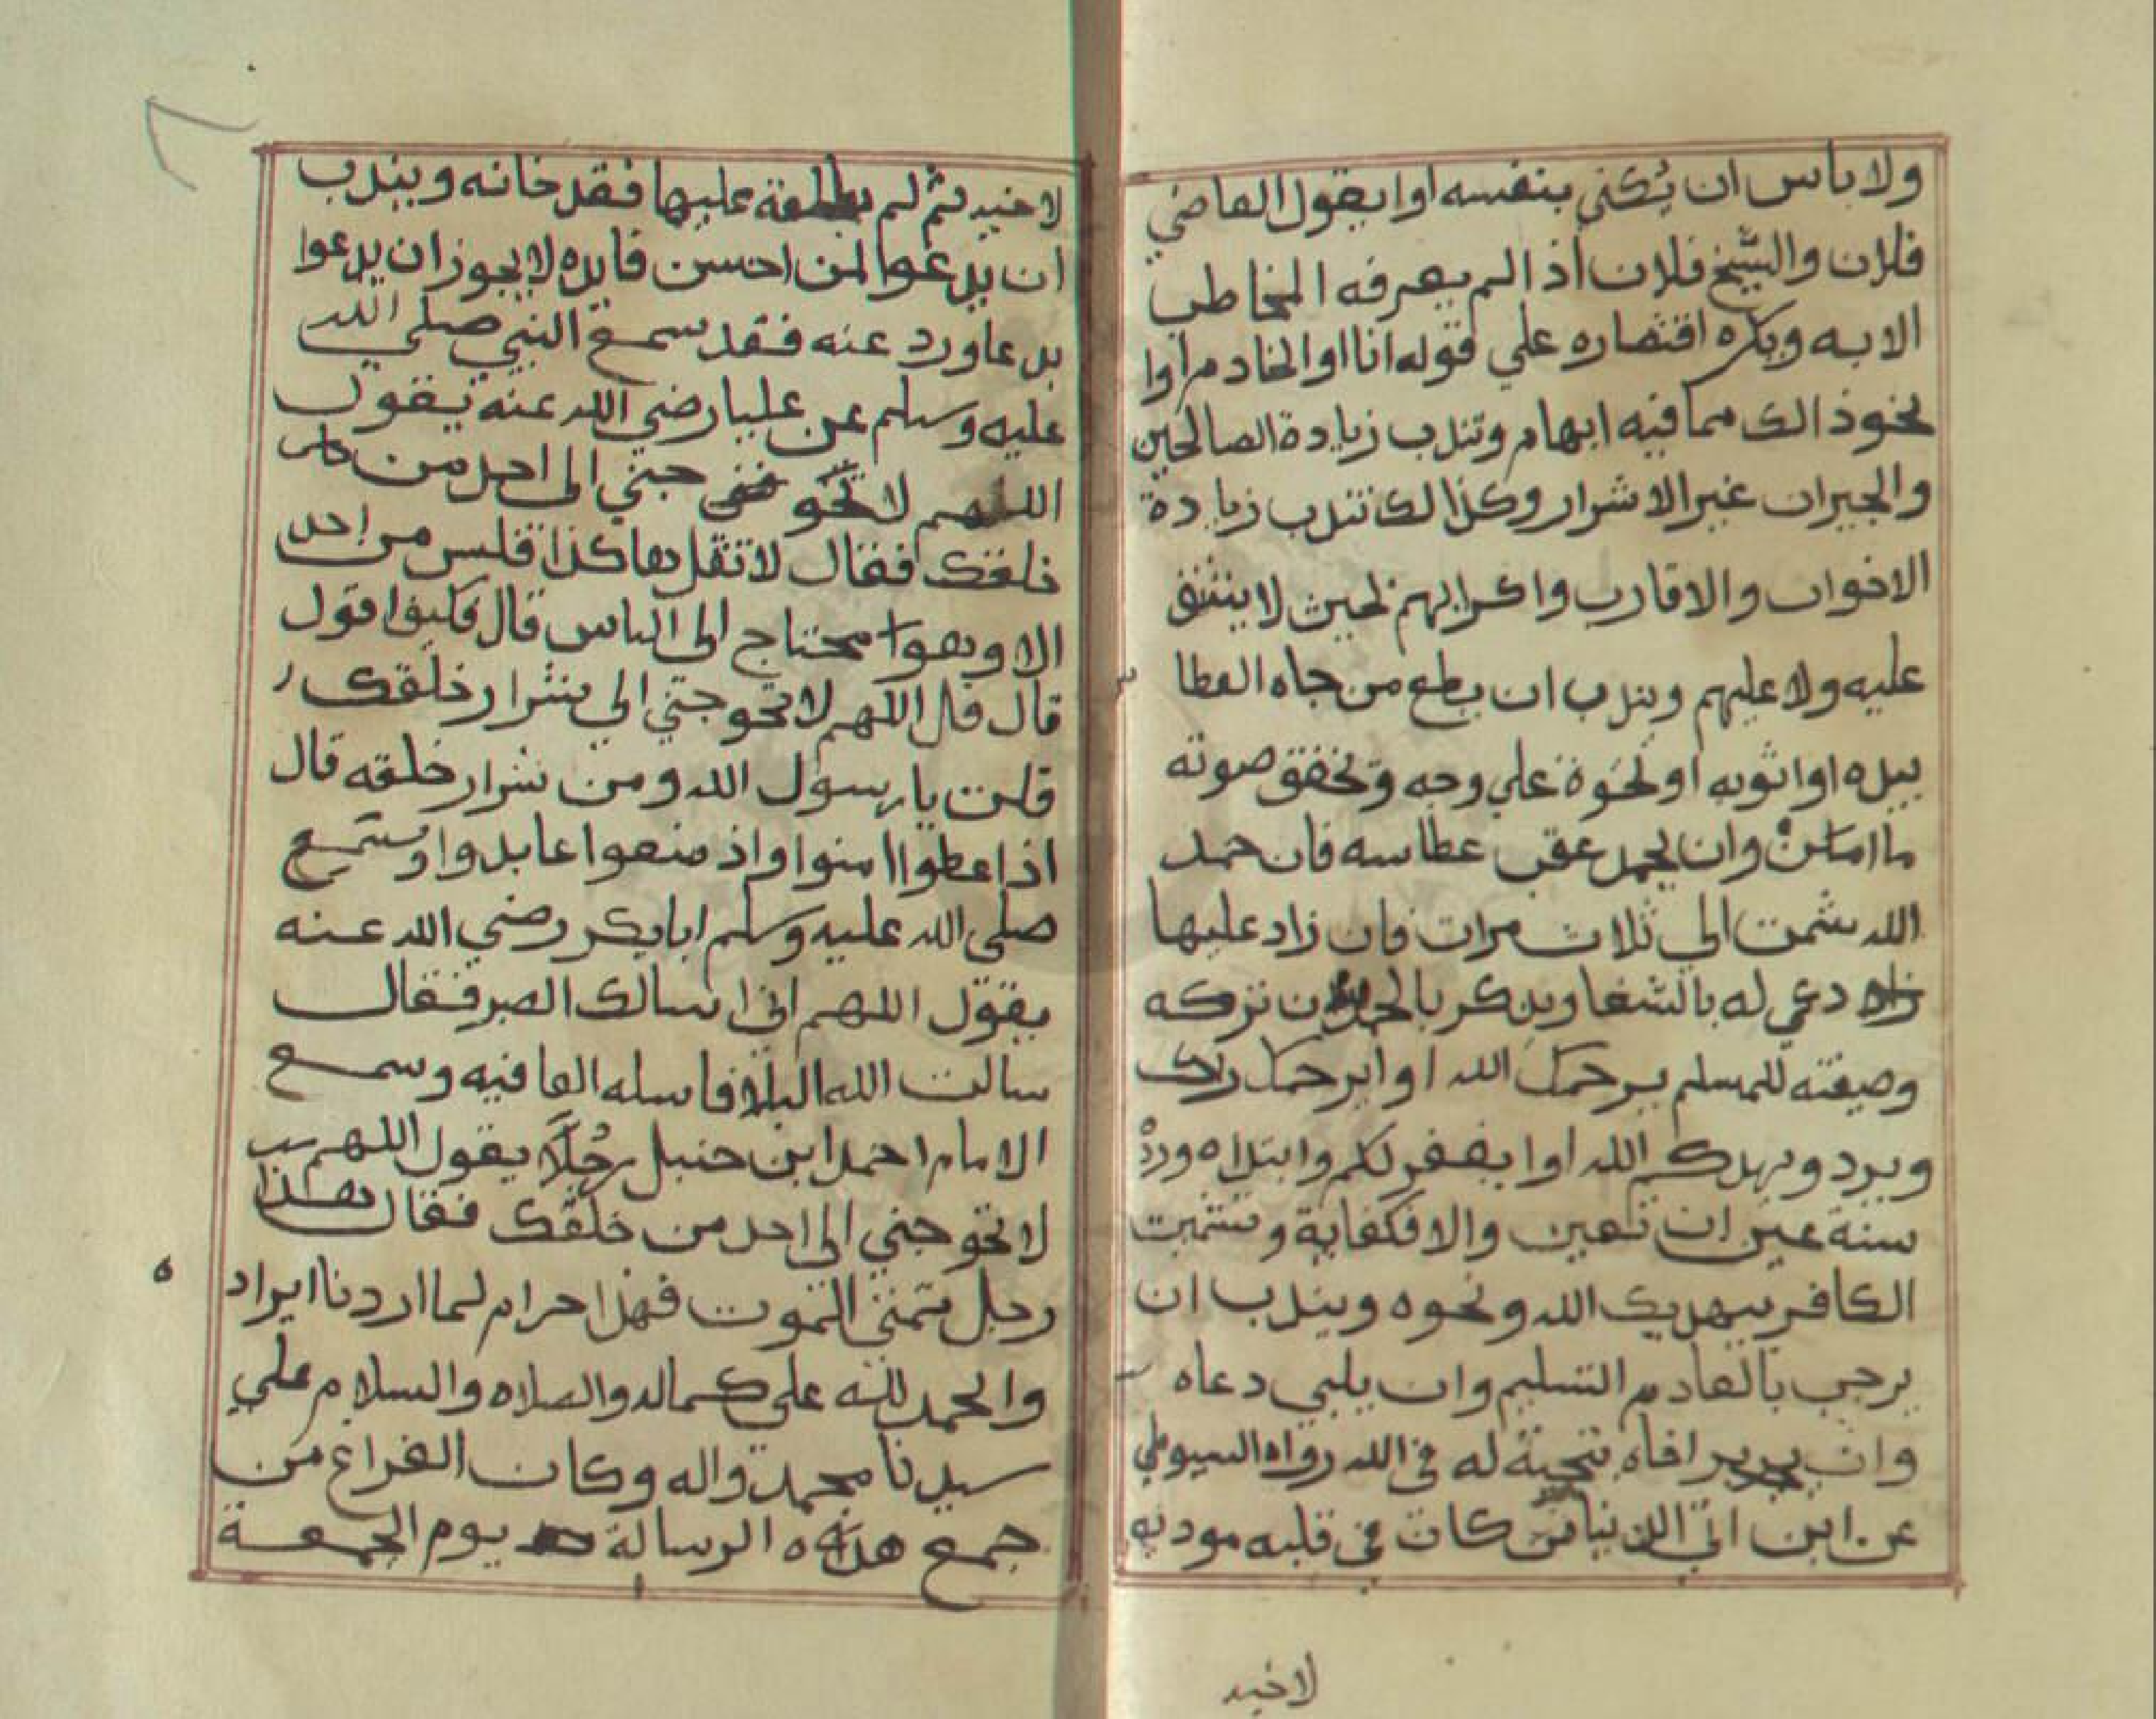 ولا باس ان يُكني بنفسه اوا يقول القاضي
فلان والشيخ فلان اذ الم يعرفه المخاطب
الا به ويكره اقتصاره علي قوله انا او الخادم اوا
نحوذ الك مما فيه ابهام وتندب زيادة الصالحين
والجيران غير الاشرار وكذالك تندب زيادة
الاخوان والاقارب واكرابهم بحيث لا يشق
عليه ولا عليهم ويندب ان يطع من جاه العطا
بيده اوا ثوبه او نحوة علي وجه وتخفق صوته
ما امكن وان يحمد عقب عطاسه فان حمد
الله شمت الي ثلاث مرات فان زاد عليها
دعي له بالشفا ويذكر بالحمد ان تركه
وصيغته للمسلم يرحمك الله اوا يرحمك ربك
ويرد ويهدكم الله اوا يغفر لكم وابتداه وردْ
سنة عين ان تعين والا فكفاية وتشميت
الكافر بيهديك الله ونحوه ويندب ان
يرحب بالقادم التسليم وان يلبي دعاه
وان يخبر اخاه بمحبته له في الله رواه السيوطي
عن ابن ابي الدنيا من كان في قلبه مودته
لاخيه
لاخيه ثم لم يطلعة عليها فقد خانه ويندب
ان يدعوا لمن احسن فايده لا يجوز ان يدعوا
بدعا ورد عنه فقد سمع النبي صلي الله
عليه وسلم عن عليا رضي الله عنه يقول
اللهم لا تحو جني الى احد من
خلقك فقال لا تقل هاكذا فليس من احد
الا وهوا محتاج الى الناس قال فكيف اقول
قال قال اللهم لا تحو جني الي شرار خلقك
قلت يا رسول الله ومن شرار خلقه قال
اذا عطوا امنوا واذ منعوا عابدوا وسمع
صلى الله عليه وسلم ابا بكر رضي الله عنه
يقول اللهم اني اسالك الصبر فقال
سالت الله البلا فاسله العافيه وسمع
الامام احمد ابن حنبل رجُلاً يقول اللهم
لا تحو جني الى احد من خلقك فقال هذا
رجل تمنى الموت فهذا حرام لما اردنا ايراد ه
والحمد لله على كماله والصلاه والسلام علي
سيدنا محمد واله وكان الفراغ من
جمع هذه الرسالة يوم الجمعة